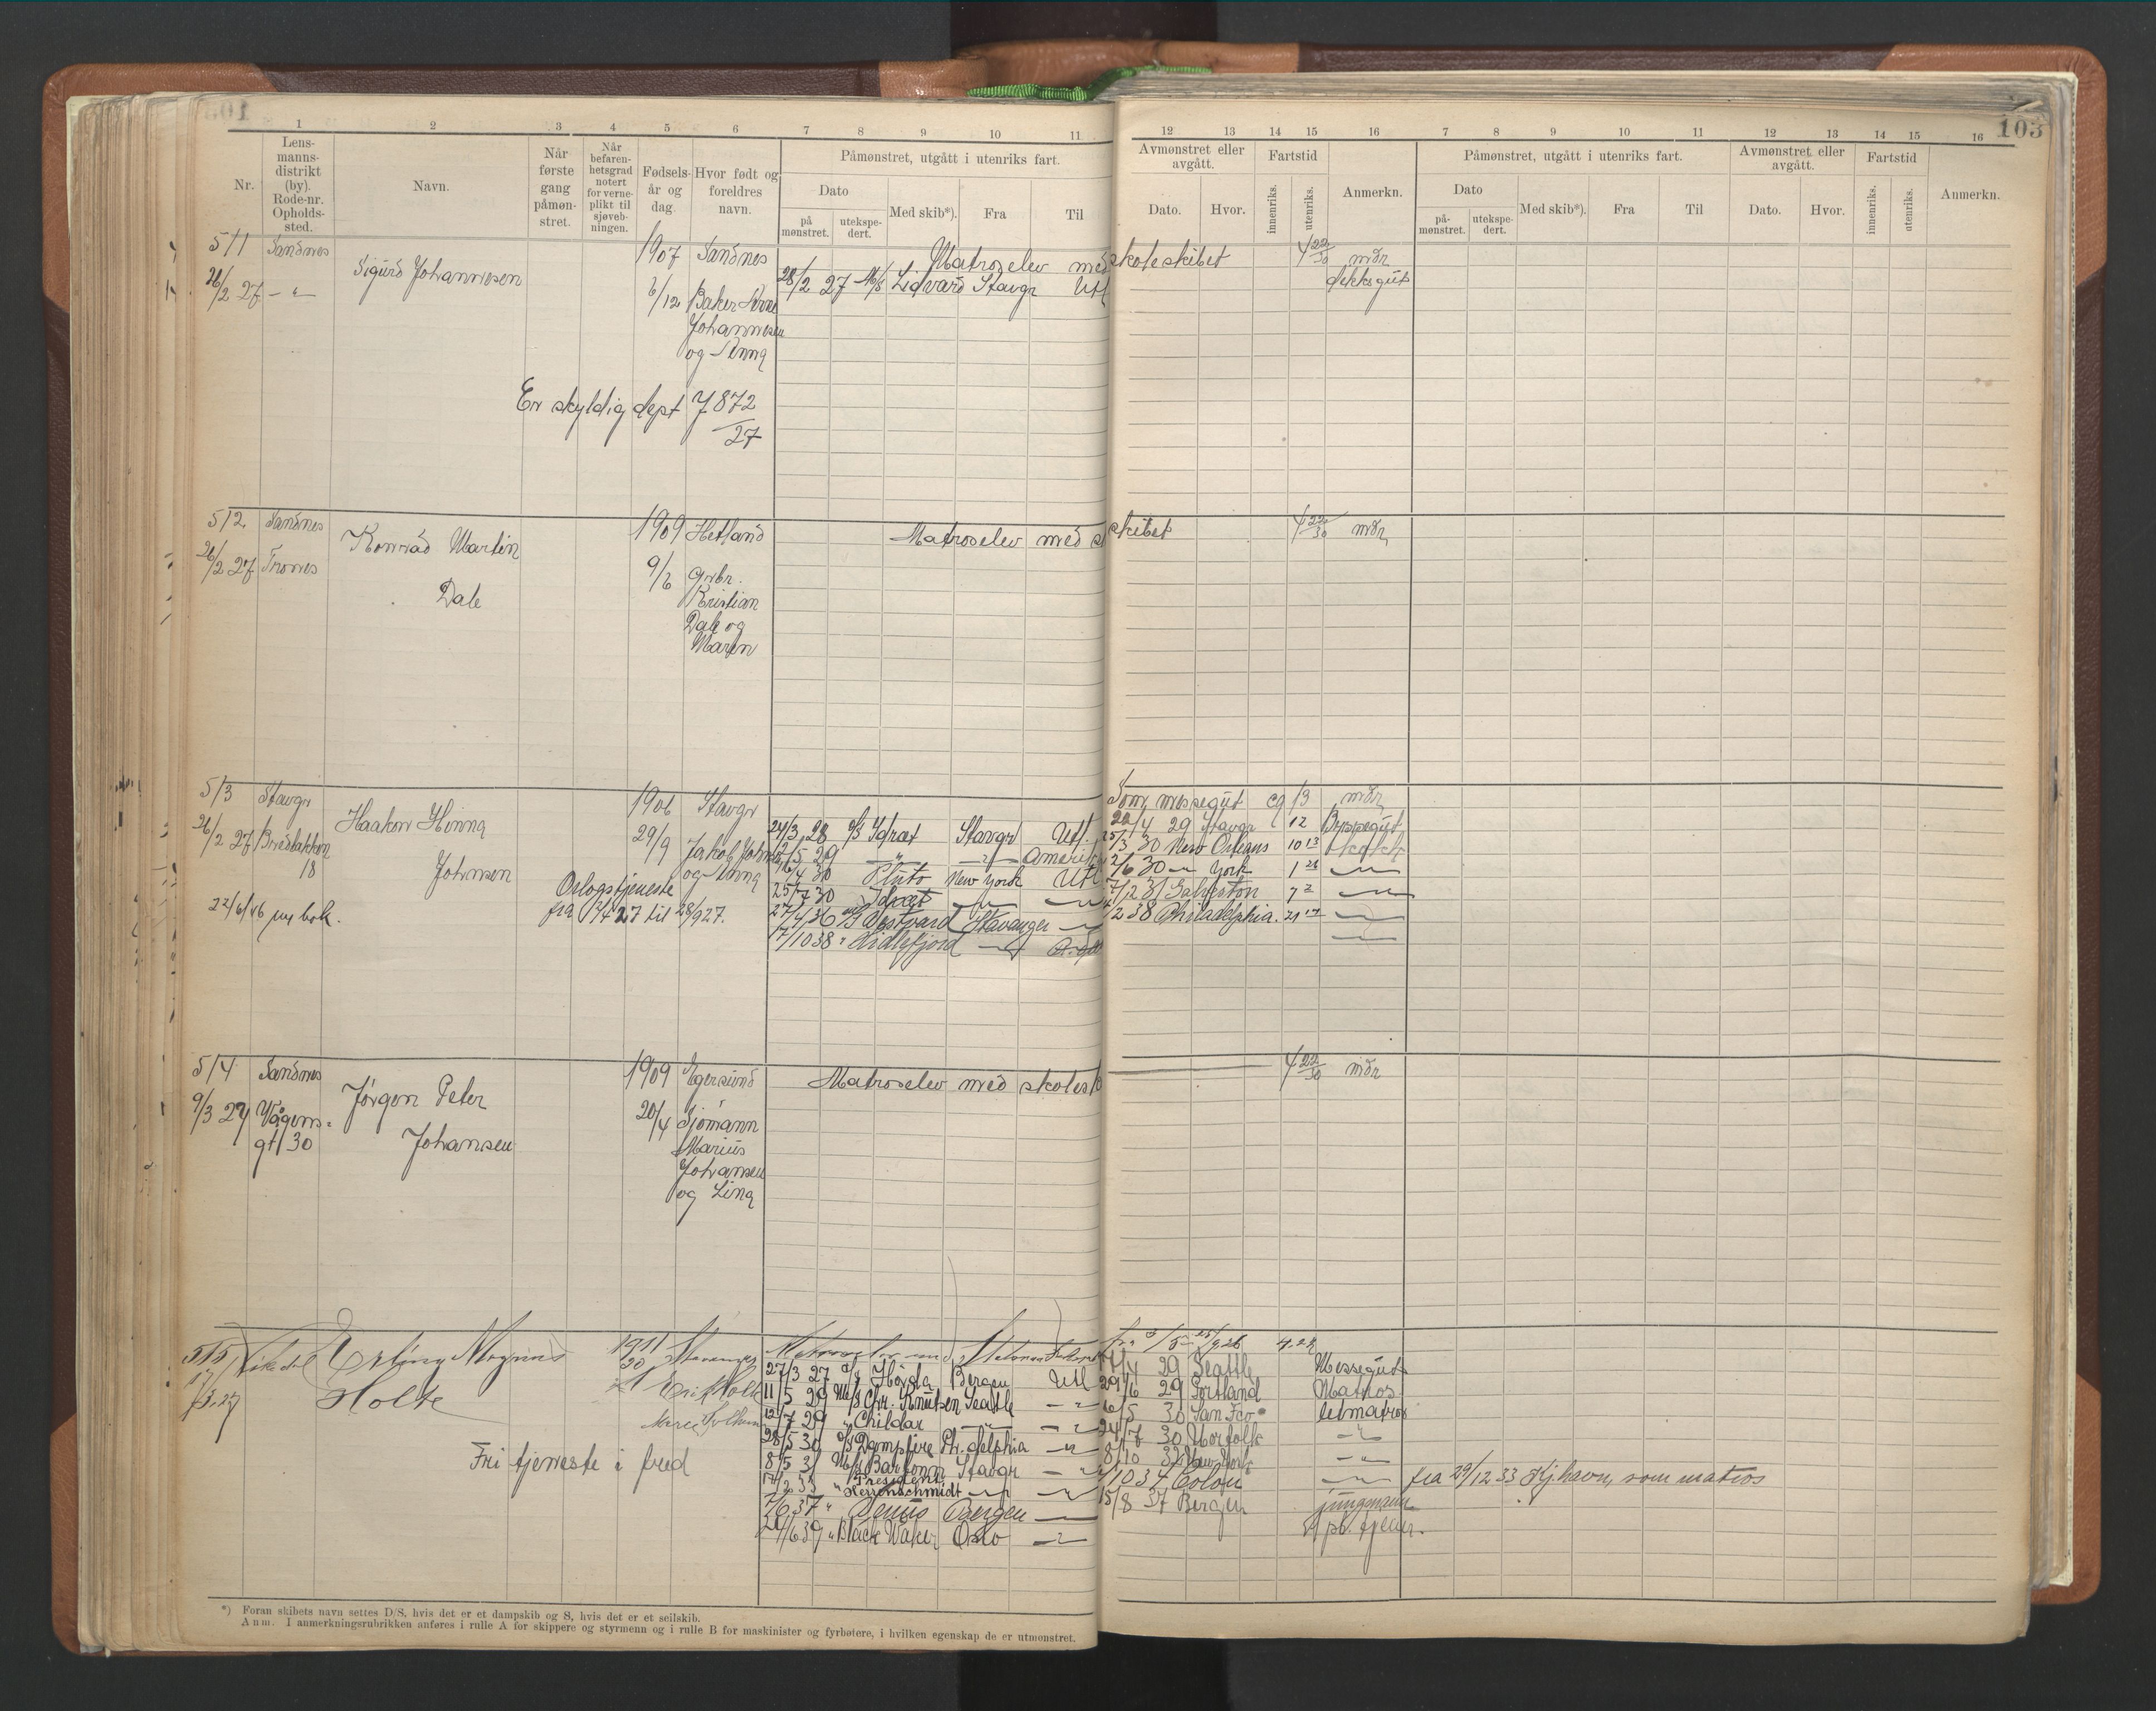 103
1 2 3 4 5 6 7 8 9 10 11 12 13 14 15 16 7 8 9 10 11 12 13 14 15 16
Nr.
Lens-
manns-
distrikt
(by).
Rode-nr.
Opholds-
sted.
Navn.
Når
første
gang
påmøn-
stret.
Når
befaren-
hetsgrad
notert
for verne-
plikt til
sjøveb-
ningen.
Fødsels-
år og
dag.
Hvor født og
foreldres
navn.
Påmønstret, utgått i utenriks fart.
Dato
på
mønstret.
utekspe-
dert.
Med skib*).
Fra
Til
Avmønstret eller
avgått.
Dato.
Hvor.
Fartstid
innenriks.
utenriks.
Anmerkn.
Påmønstret, utgått i utenriks fart.
Dato
på-
mønstret.
utekspe-
dert.
Med skib*).
Fra
Til
Avmønstret eller
avgått.
Dato.
Hvor.
Fartstid
innenriks.
utenriks.
Anmerkn.
511 Sandnes Sigurd Johannesen 1907 Sandnes Matroselev med skoleskibet 4 22/30 mdr
26/2 27 — " — 6/12 Baker 28/2 27 M/S Lidvard Stavgr Utl dekksgut
Johannesen
og Anna
Er skyldig dept 7872
27
512 Sandnes Konrad Martin 1909 Hetland Matroselev med skibet 4 22/30 mdr
26/2 27 Trones Dale 9/6 grbr.
Kristian
Dale og
Maren
513 Stavgr Haakon Hinna 1906 Stavgr Som messegut ca 13 mdr
26/2 27 18 Johnsen 29/9 Jakob
og Anna
24/3 28 D/S Idræt Stavgr Utl. 20/4 29 Stavgr 12 Byssegut
29 — " — Amerika /3 30 New Orleans 10 13 kokk
/4 30 Pluto New York Utl 2/6 30 — " — York 1 26 — " —
25/7 30 Idræt — " — — " — 7/2 31 Galveston 7 2 — " —
27/4 36 Vestvard Stavanger — " — /2 38 Philadelphia. 21 — " —
7/10 38 " Hidlefjord — " — — " —
Orlogstjeneste
fra /4 27 til 28/9 27.
22/6/46 ny bok.
514 Sandnes Jørgen Peter 1909 Egersund Matroselev med skolesk 4 22/30 mdr
9/3 27 Vågens-
gt 30 Johansen 20/4 Sjømann
Marius
Johansen
og Lina
515 Erling Magnus 1911 Stavanger
Holte Erik Holte
27/3 27 D/S Høyda Bergen Utl /4 29 Seattle Messegut
11/5 29 M/S Chr. Knutsen Seattle — " — 29/6 29 Portland Matros
12/7 29 " Childar — " — — " — 6/5 30 San Fco letmatros
28/5 30 D/S Dampfire Ph. delphia — " — 24/7 30 Norfolk — " —
8/5 31 M/S Barfonn Stavgr — " — 8/10 32 New York — " —
33 " President
Herrenschmidt — " — — " — /10 34 Colon — " — fra 29/12 33 Kj.havn, som matros
7/6 37 " Venus Bergen — " — 15/8 37 Bergen jungmann
29/6 39 " Black Oslo — " —
Fri tjeneste i fred
*) Foran skibets navn settes D/S, hvis det er et dampskib og S, hvis det er et seilskib.
Anm. I anmerkningsrubrikken anføres i rulle A for skippere og styrmenn og i rulle B for maskinister og fyrbøtere, i hvilken egenskap de er utmønstret.